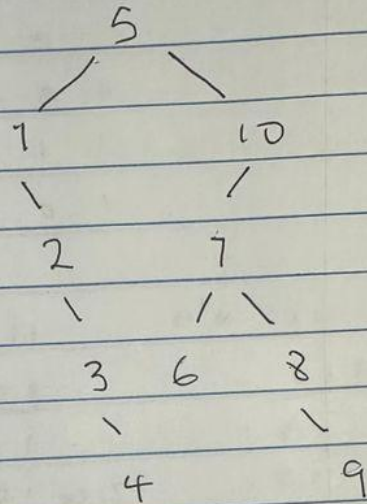 5
1 10
2 7
3 6 8
4 9